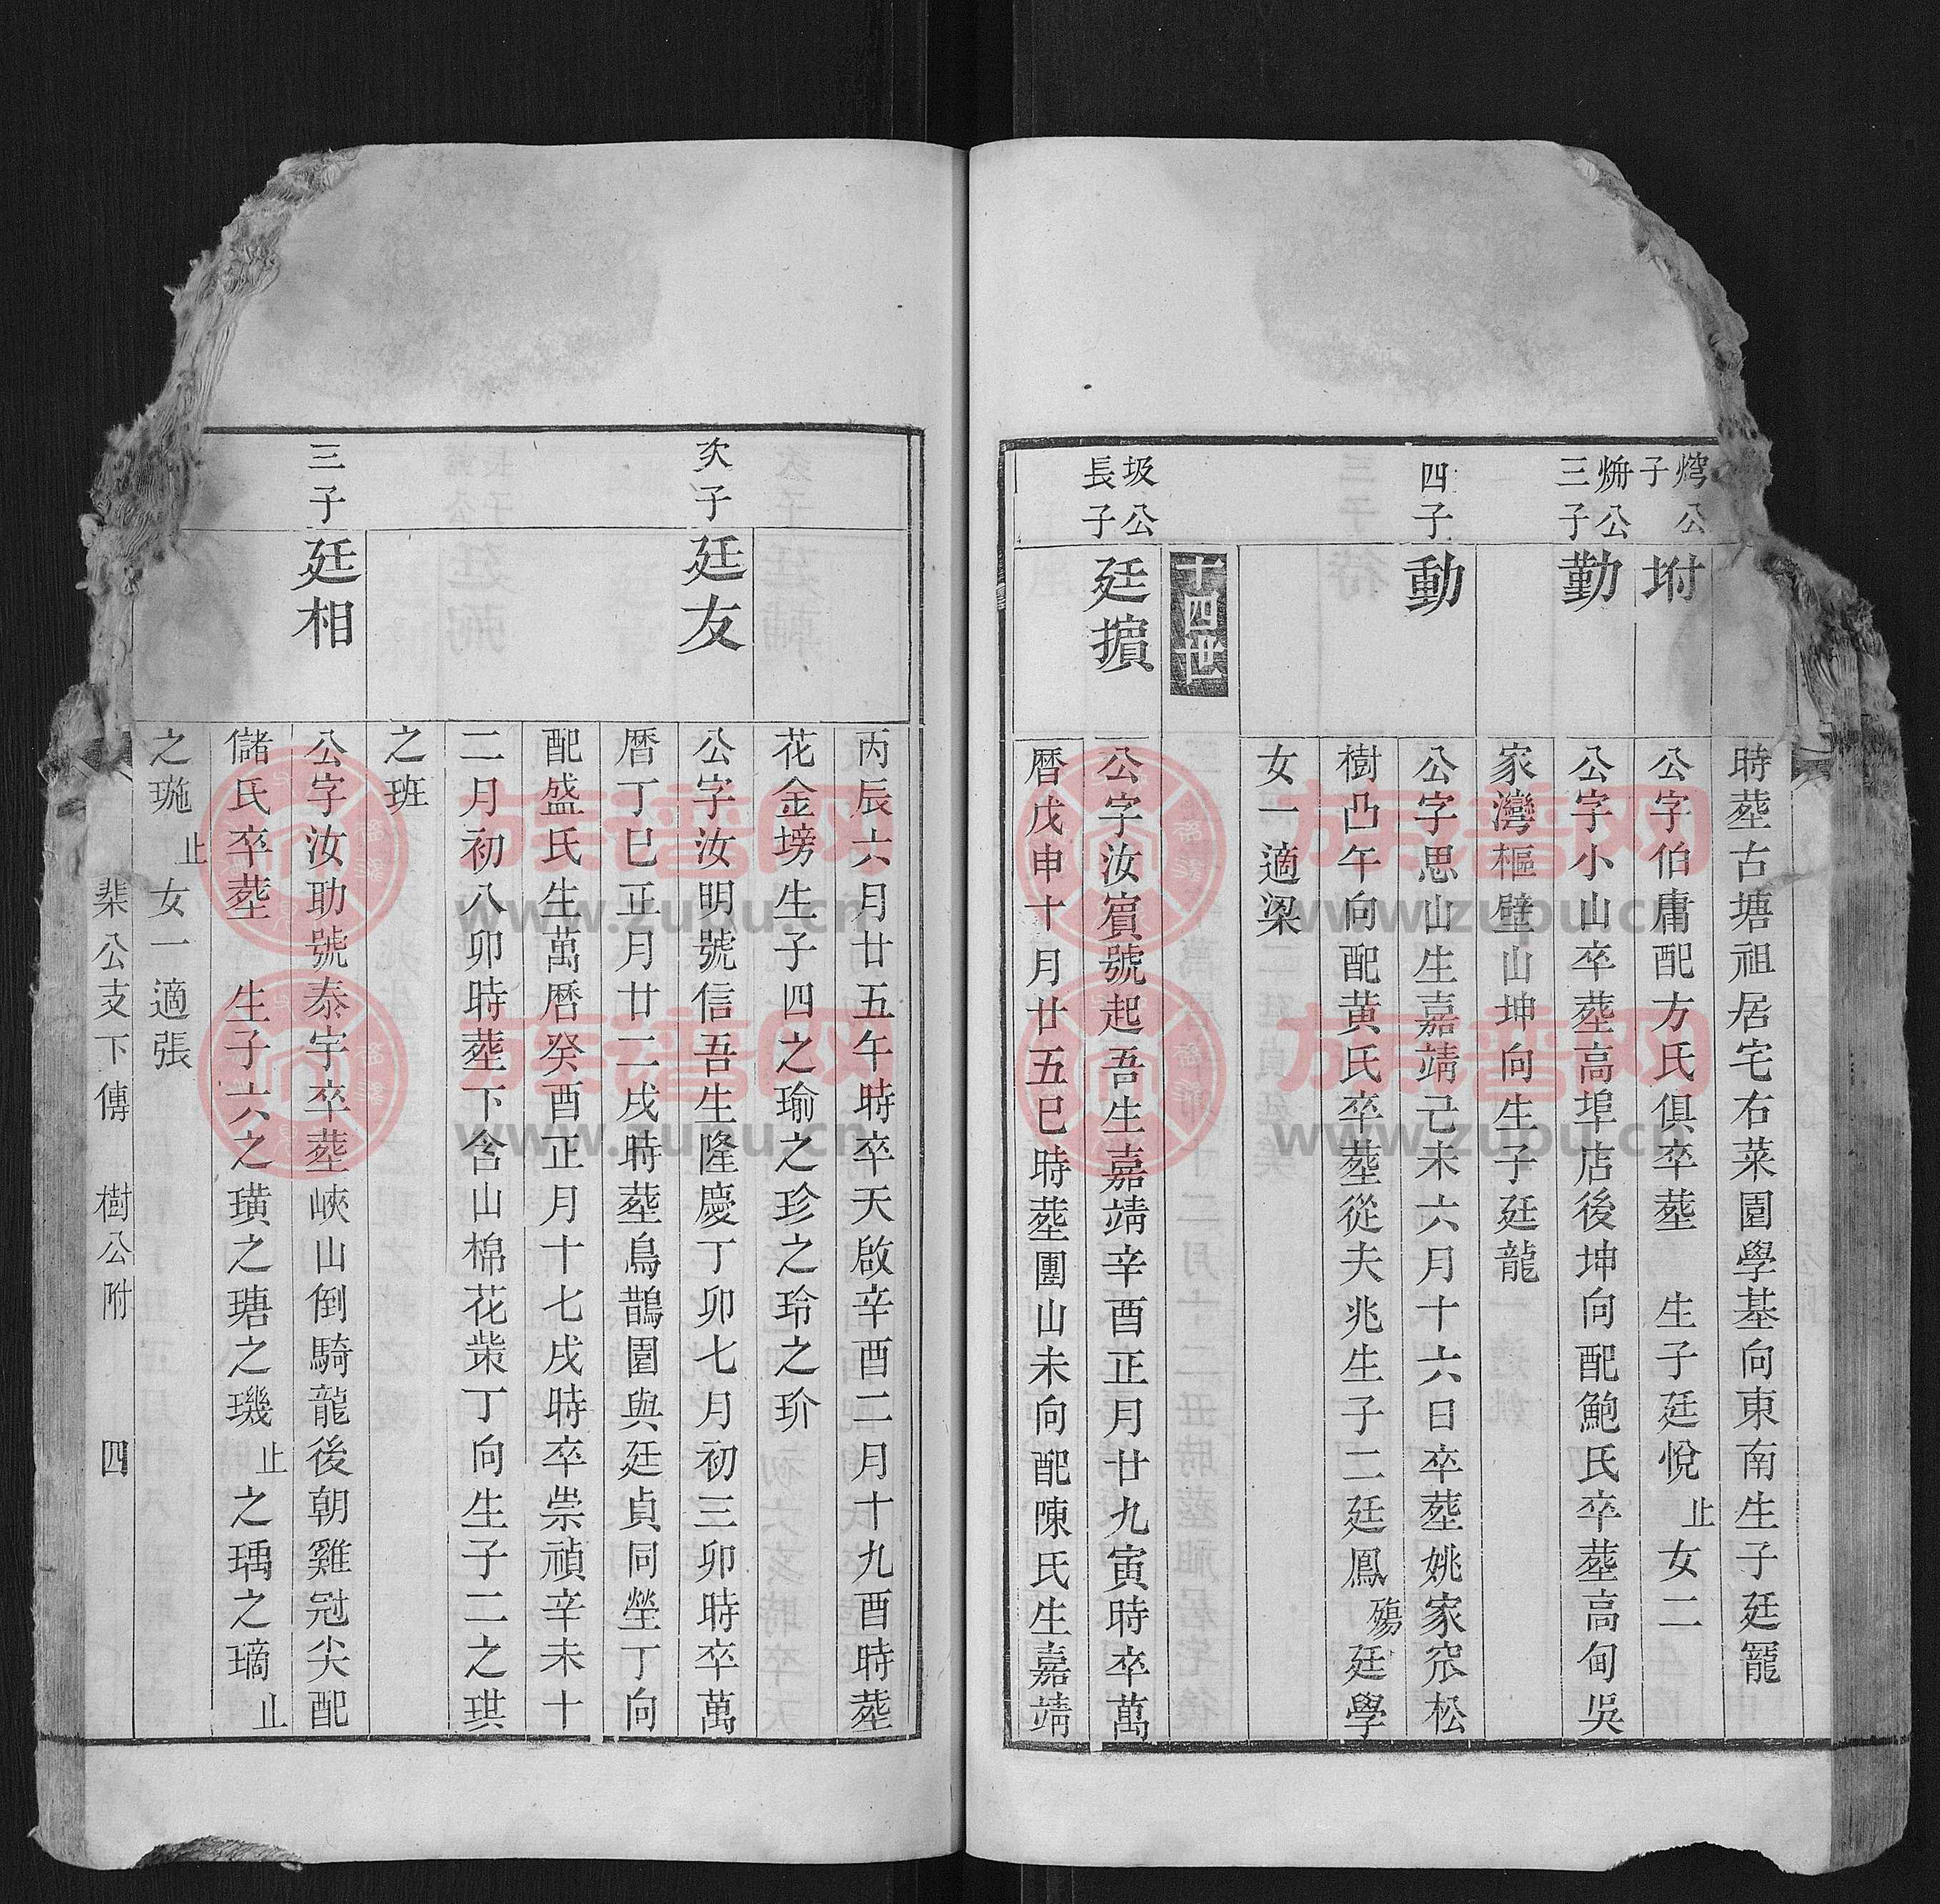 時塟古塘祖居宅右菜園學基向東南生子廷寵
公
子
坿
公字伯庸配方氏俱卒塟 生子廷悅止女二
公
三子
勤
公字小山卒塟高埠店後坤向配鮑氏卒塟高甸吳
家灣樞壁山坤向生子廷龍
四子
動
公字思山生嘉靖己未六月十六日卒塟姚家窊松
樹凸午向配黄氏卒塟從夫兆生子二廷鳳殤廷學
女一適梁
十四世
圾公
長子
廷擯
公字汝賔號起吾生嘉靖辛酉正月廿九寅時卒萬
暦戊申十月廿五巳時塟團山未向配陳氏生嘉靖
丙辰六月廿五午時卒天啟辛酉二月十九酉時塟
花金塝生子四之瑜之珍之玲之玠
次子
廷友
公字汝明號信吾生隆慶丁卯七月初三卯時卒萬
暦丁巳正月廿二戌時塟鳥鵲園與廷貞同塋丁向
配盛氏生萬暦癸酉正月十七戌時卒崇禎辛未十
二月初八卯時塟下含山棉花柴丁向生子二之珙
之班
三子
廷相
公字汝助號泰宇卒塟峽山倒騎龍後朝雞冠尖配
儲氏卒塟 生子六之璜之瑭之璣止之瑀之璃止
之㻱止女一適張
棐公支下傳 樹公附 四
族譜网
www.zupu.cn
族譜网
www.zupu.cn
族譜网
www.zupu.cn
族譜网
www.zupu.cn